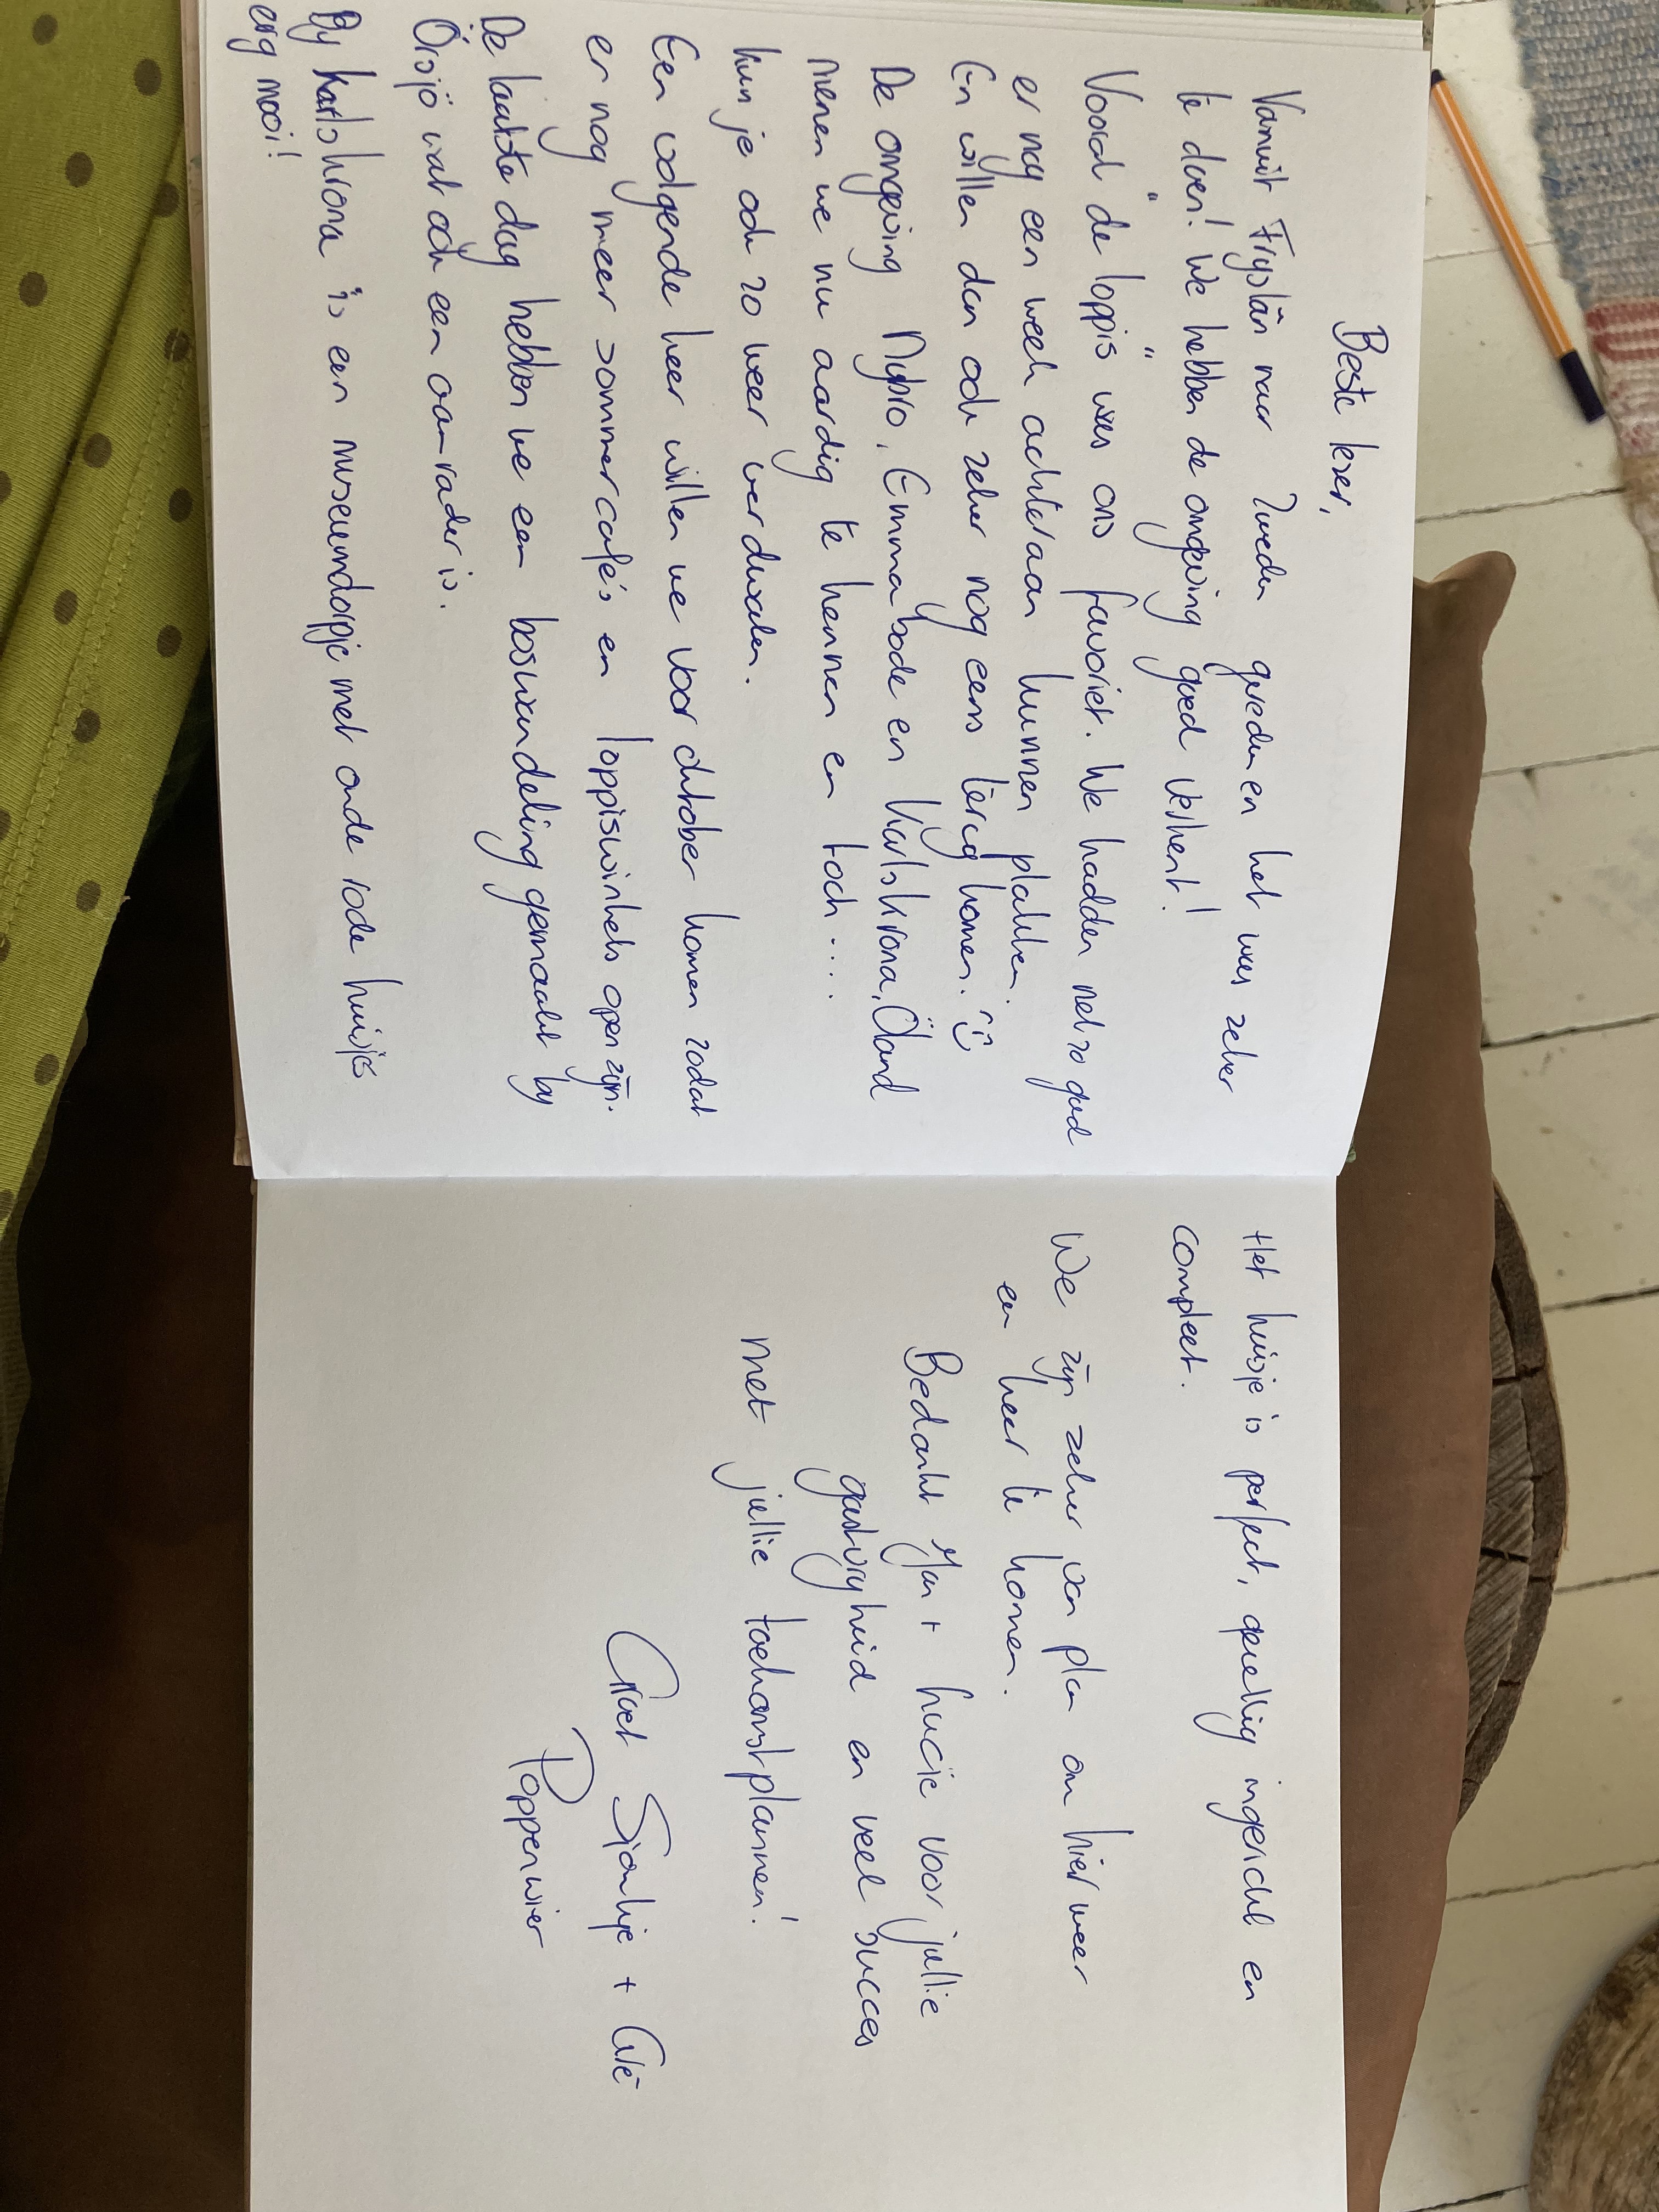 Beste lezer,
Vanuit Fryslân naar Zweden gereden en het was zeker
te doen! We hebben de omgeving goed verkent!
Vooral de "loppis" was ons favoriet. We hadden net zo goed
er nog een week achteraan kunnen plakken.
En willen dan ook zeker nog eens terug komen. :)
De omgeving Nybro, Emmabode en Karlskrona, Öland
menen we nu aardig te kennen en toch....
kun je ook zo weer verdwalen.
Een volgende keer willen we voor oktober komen zodat
er nog meer sommercafé's en loppiswinkels open zijn.
De laatste dag hebben we een boswandeling gemaakt by
Örsjö wat ook een aanrader is.
By Karlskrona is een museumdorpje met oude rode huisjes
erg mooi!
Het huisje is perfect, gezellig ingericht en
compleet.
We zijn zeker van plan om hier weer
een keer te komen.
Bedankt Jan + Lucie voor jullie
gastvryheid en veel succes
met jullie toekomstplannen!
Groet Sjoukje +
Poppenwier